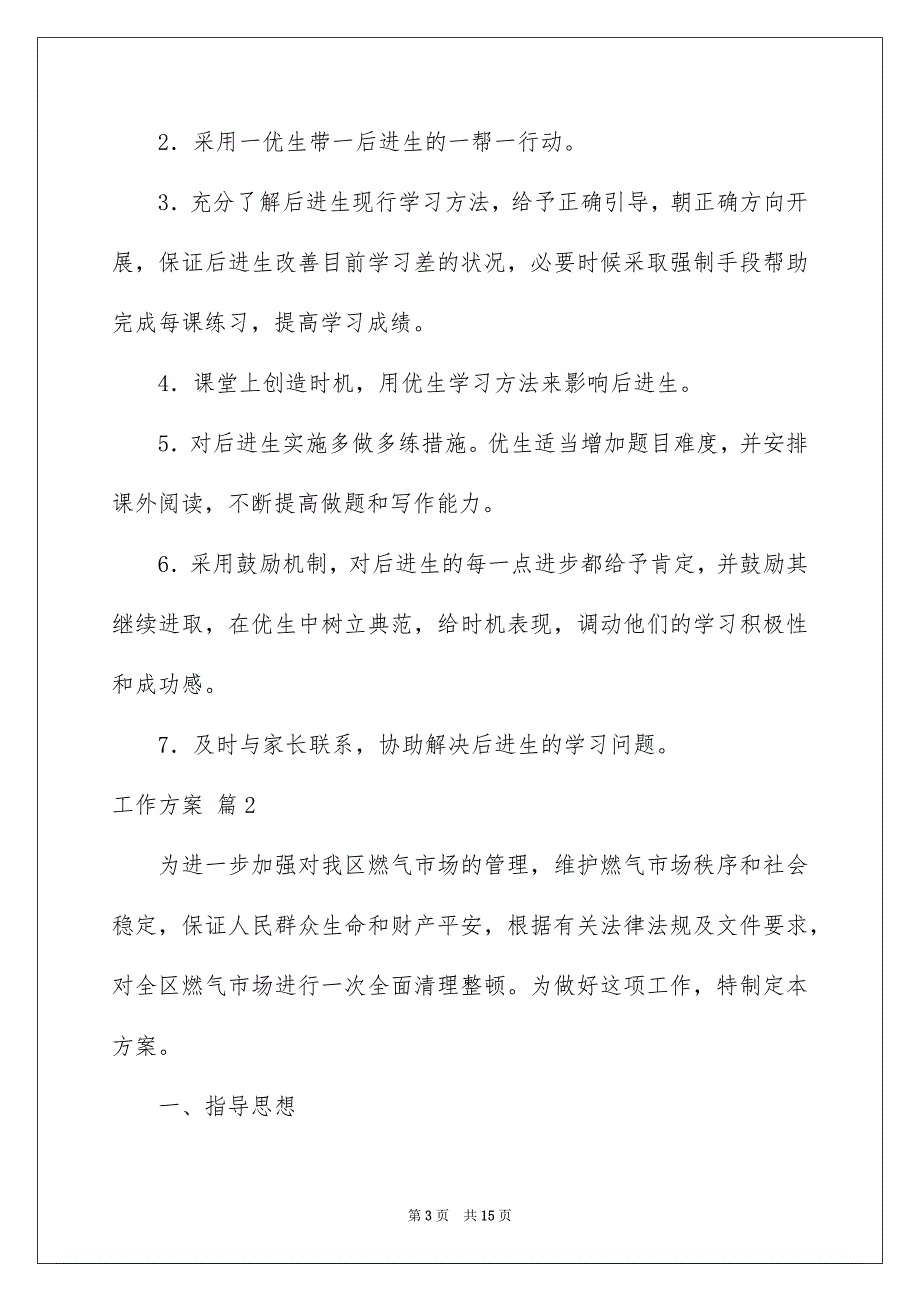 2．采用一优生带一后进生的一帮一行动。
3．充分了解后进生现行学习方法，给予正确引导，朝正确方向开
展，保证后进生改善目前学习差的状况，必要时候采取强制手段帮助
完成每课练习，提高学习成绩。
4．课堂上创造时机，用优生学习方法来影响后进生。
5．对后进生实施多做多练措施。优生适当增加题目难度，并安排
课外阅读，不断提高做题和写作能力。
6．采用鼓励机制，对后进生的每一点进步都给予肯定，并鼓励其
继续进取，在优生中树立典范，给时机表现，调动他们的学习积极性
和成功感。
7．及时与家长联系，协助解决后进生的学习问题。
工作方案 篇2
为进一步加强对我区燃气市场的管理，维护燃气市场秩序和社会
稳定，保证人民群众生命和财产平安，根据有关法律法规及文件要求，
对全区燃气市场进行一次全面清理整顿。为做好这项工作，特制定本
方案。
一、指导思想
第3页 共15页